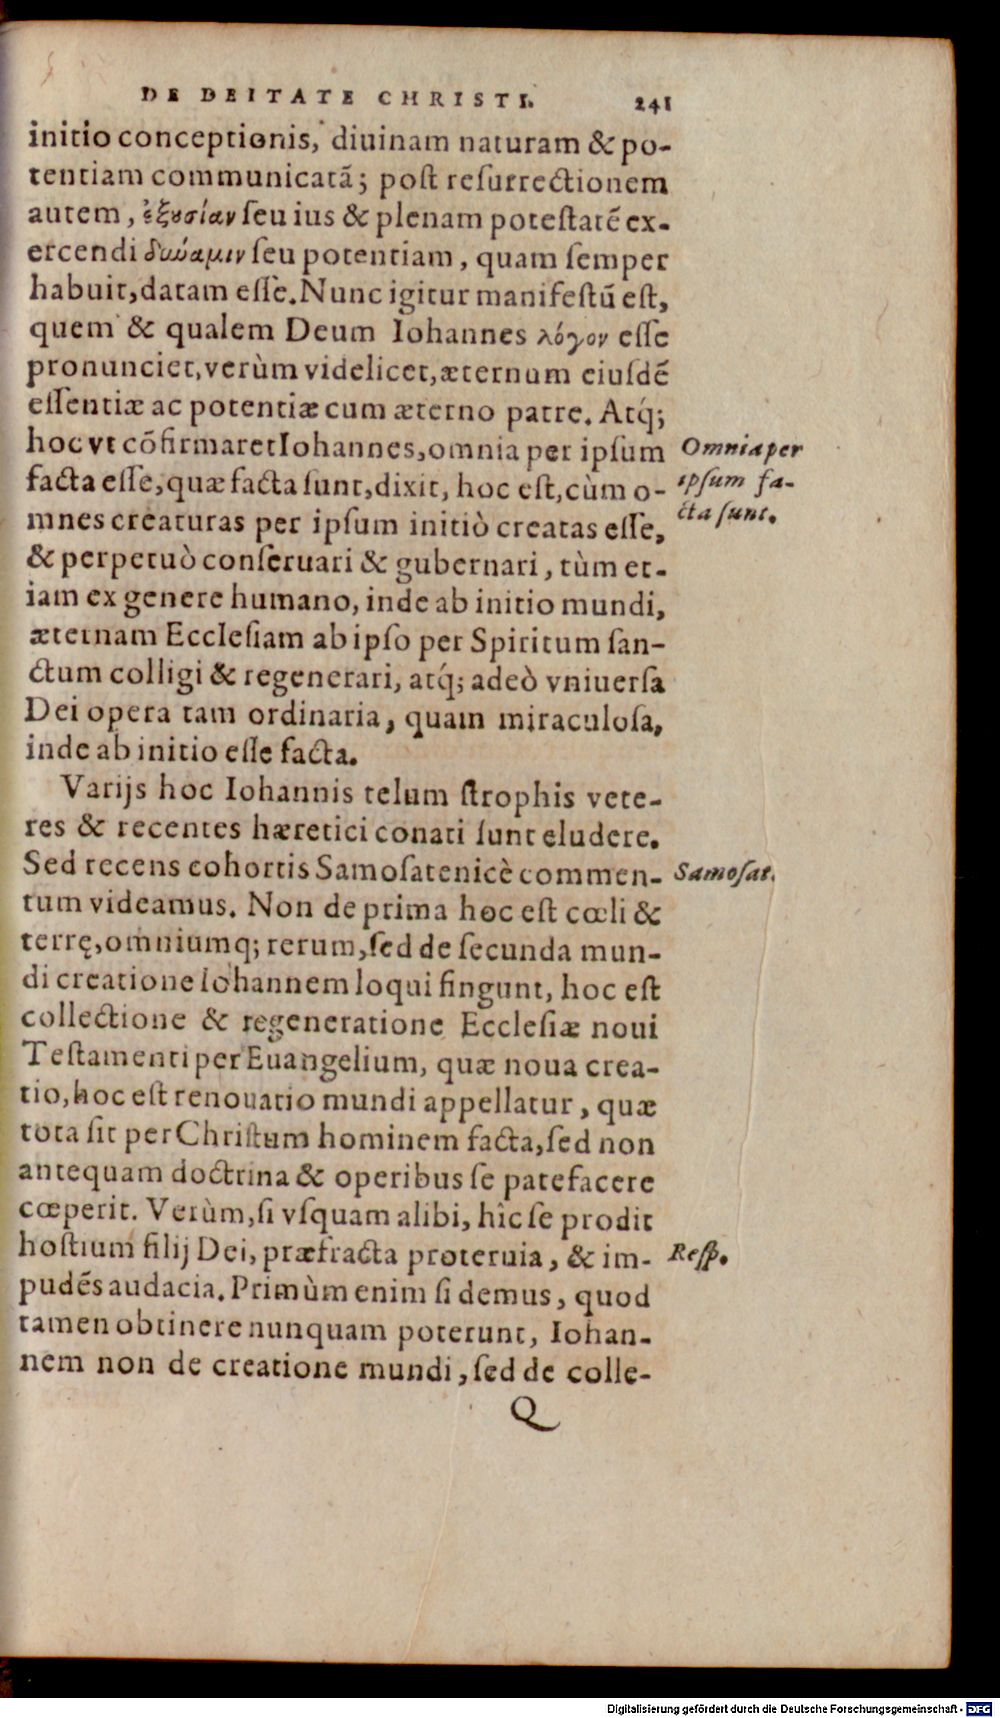 DE DEITATE CHRISTI. 241
initio conceptionis, diuinam naturam & po-
tentiam communicatã; post resurrectionem
autem, ἐξουσίαν seu ius & plenam potestatẽ ex-
ercendi δυνάμιν seu potentiam, quam semper
habuit, datam esse. Nunc igitur manifestũ est,
quem & qualem Deum Iohannes λόγον esse
pronunciet, verùm videlicet, æternum eiusdẽ
essentiæ ac potentiæ cum æterno patre. Atq́;
hoc vt cõfirmaret Iohannes, omnia per ipsum
Omnia per
facta esse, quæ facta sunt, dixit, hoc est, cùm o-
ipsum fa-
mnes creaturas per ipsum initiò creatas esse,
cta sunt.
& perpetuò conseruari & gubernari, tùm et-
iam ex genere humano, inde ab initio mundi,
æternam Ecclesiam ab ipso per Spiritum san-
ctum colligi & regenerari, atq́; adeò vniuersa
Dei opera tam ordinaria, quam miraculosa,
inde ab initio esse facta.
Varijs hoc Iohannis telum strophis vete-
res & recentes hæretici conati sunt eludere.
Sed recens cohortis Samosatenicè commen-
Samosat.
tum videamus. Non de prima hoc est cœli &
terrę, omniumq; rerum, sed de secunda mun-
di creatione Iohannem loqui fingunt, hoc est
collectione & regeneratione Ecclesiæ noui
Testamenti per Euangelium, quæ noua crea-
tio, hoc est renouatio mundi appellatur, quæ
tota sit per Christum hominem facta, sed non
antequam doctrina & operibus se patefacere
cœperit. Verùm, si vsquam alibi, hîc se prodit
hostium filij Dei, præfracta proteruia, & im-
Resp.
pudẽs audacia. Primùm enim si demus, quod
tamen obtinere nunquam poterunt, Iohan-
nem non de creatione mundi, sed de colle-
Q
Digitalisierung gefördert durch die Deutsche Forschungsgemeinschaft - DFG